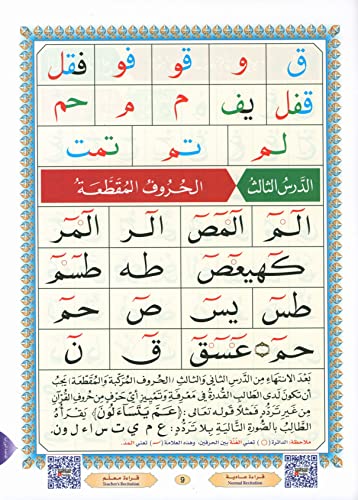 ق و قو فو فقل
قفل يف م م حم
لم تم تمت
الدَّرسُ الثالِثُ الحُرُوفُ المُقَطَّعَةُ
الٓمٓ الٓمٓصٓ الٓر الٓمٓر
كٓهيعٓصٓ طه طسٓمٓ
طسٓ يسٓ صٓ حمٓ
حمٓ عٓسٓقٓ قٓ نٓ
بَعدَ الانتِهاءِ مِنَ الدَّرسَينِ الثاني والثالِثِ / الحروفِ المُرَكَّبةِ والمُقَطَّعةِ / يجبُ
أن تكونَ لدى الطالبِ القُدرةُ في مَعرِفةِ وتَمييزِ أيِّ حَرفٍ مِن حروفِ القُرآنِ
مِن غَيرِ تَردُّدٍ فمَثلاً قوله تعالى: ﴿عَمَّ يَتَسَاءَلُونَ﴾ يَقرَأُهُ
الطالبُ بالصُّورَةِ التَّاليةِ بلا تَردُّدٍ: ع م ي ت س ا ء ل و ن
ملاحظة: الدائرة () تعني الغنّة بين الحرفين، وهذه العلامة (ـٓ) تعني المد.
قراءة معلم
Teacher's Recitation
9
قراءة عادية
Normal Recitation